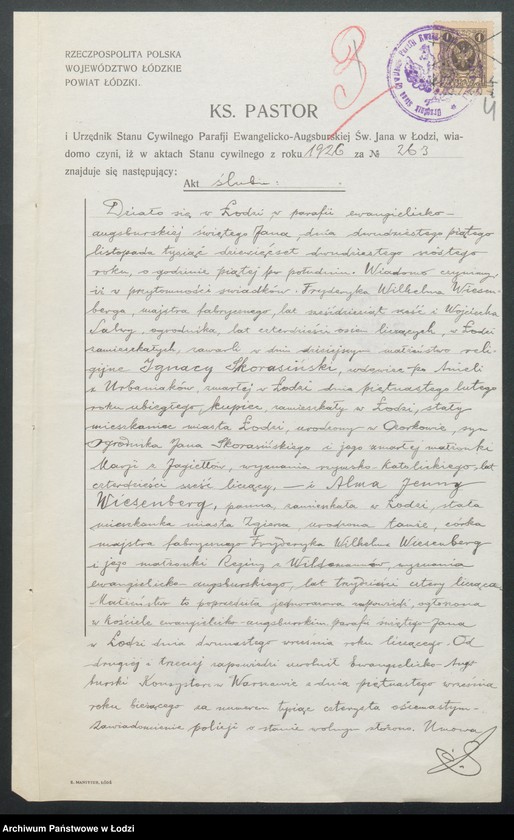 RZECZPOSPOLITA POLSKA
WOJEWÓDZTWO ŁÓDZKIE
POWIAT ŁÓDZKI.
1 1
KS. PASTOR
i Urzędnik Stanu Cywilnego Parafji Ewangelicko-Augsburskiej Św. Jana w Łodzi, wia-
domo czyni, iż w aktach Stanu cywilnego z roku 1926 za № 263
znajduje się następujący:
Akt ślubu:
Działo się w Łodzi w parafii ewangielicko-
augsburskiej świętego Jana, dnia dwudziestego piątego
listopada tysiąc dziewięćset dwudziestego szóstego
roku, o godzinie piątej po południu. Wiadomo czynimy
iż w przytomności świadków: Fryderyka Wilhelma Wiesen-
berga, majstra fabrycznego, lat sześćdziesiąt sześć i Wojciecha
ogrodnika, lat czterdzieści osiem liczących, w Łodzi
zamieszkałych, zawarli w dniu dzisiejszym małżeństwo reli-
gijne Ignacy Skorasiński, wdowiec po Anieli
z Urbaniaków, zmarłej w Łodzi dnia piętnastego lutego
roku ubiegłego, kupiec, zamieszkały w Łodzi, stały
mieszkaniec miasta Łodzi, urodzony w Ozorkowie, syn
Ogrodnika Jana Skorasińskiego i jego zmarłej małżonki
Marji z Jagiełłów, wyznania rzymsko-katolickiego, lat
czterdzieści sześć liczący, — i Alma Jenny
Wiesenberg, panna, zamieszkała w Łodzi, stała
mieszkanka miasta Zgierza, urodzona tamże, córka
majstra fabrycznego Fryderyka Wilhelma Wiesenberg
i jego małżonki Reginy z Wildemanów, wyznania
ewangielicko-augsburskiego, lat trzydzieści cztery licząca.
Małżeństwo to poprzedziła jednorazowa zapowiedź, ogłoszona
w kościele ewangielicko-augsburskim parafii świętego Jana
w Łodzi dnia dwunastego września roku bieżącego. Od
drugiej i trzeciej zapowiedzi uwolnił Ewangielicko-Augs-
burski Konsystorz w Warszawie z dnia piętnastego września
roku bieżącego za numerem tysiąc czterysta osiemnastym.-
Zawiadomienie policji o stanie wolnym złożono. Umowa